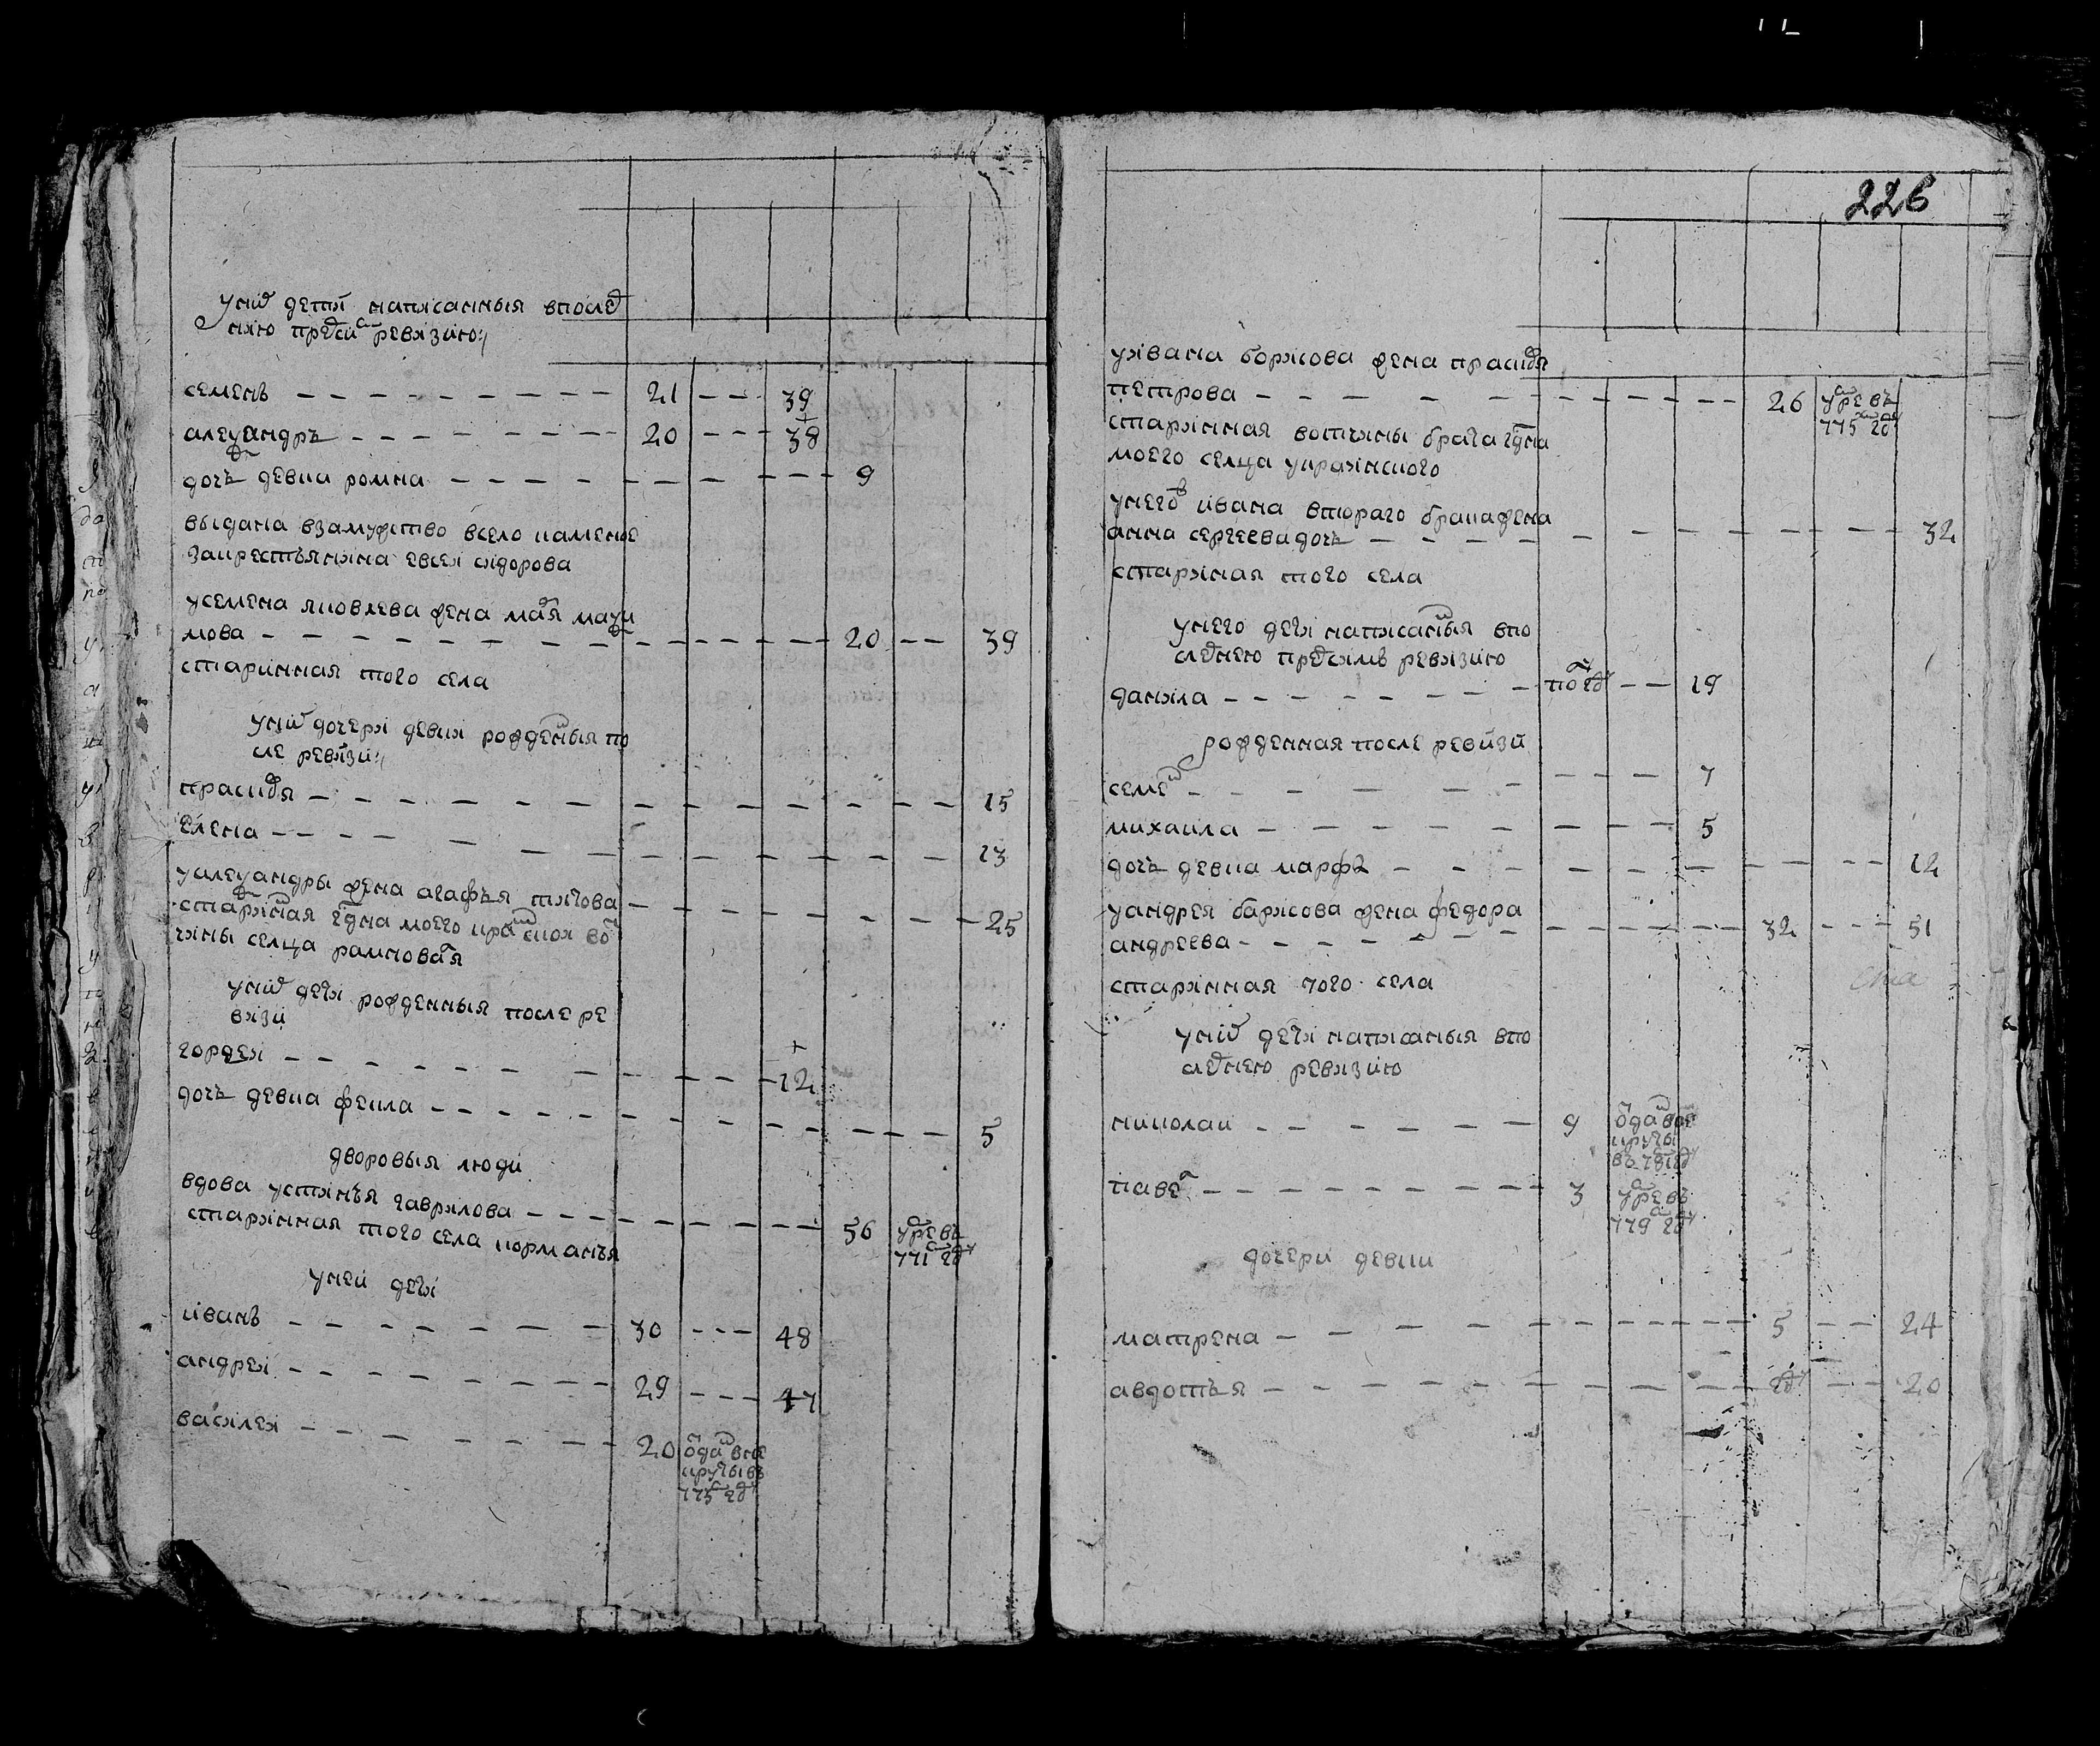 уних дети написанныя впослед
нию пред сим ревизию
семенъ 21 39
александръ 20 38
дочь девка романа 9
выдана взамужство всело каменкѣ
закрестьянина евсея сидорова
усемена яковлева жена марья макси
мова 20 39
старинная того села
уних дочери девки рожденныя по
сле ревизии
прасковья 15
елена 13
уалександры жена агафья титова 25
старинная гдна моего
чины селца
уних дети рожденныя после ре
визи
гордеи 12
дочь девка фекла 5
дворовыя люди
вдова устинья гаврилова 56 умре въ
771 году
старинная того села
уней дети
иванъ 30 48
андреи 29 47
василеи 20 отдан в
рекруты въ
775 году
226
уивана борисова жена прасковья
петрова 26 умре въ
775 году
старинная вотчины брата гдна
моего селца украинского
унего ивана втораго брака жена
анна сергеева дочь 32
старинная того села
унего дети написанныя впо
следнею пред сим ревизию
данила пол году 19
рожденная после ревизи
семен 7
михаила 5
дочь девка марфа 12
уандрея барисова жена федора
андреева 32 51
старинная того села
уних дети написаныя впо
следнею ревизию
николаи 9 отдан в ре
круты
въ году
павел 3 умре въ
779 году
дочери девки
матрена 5 24
авдотья году 20